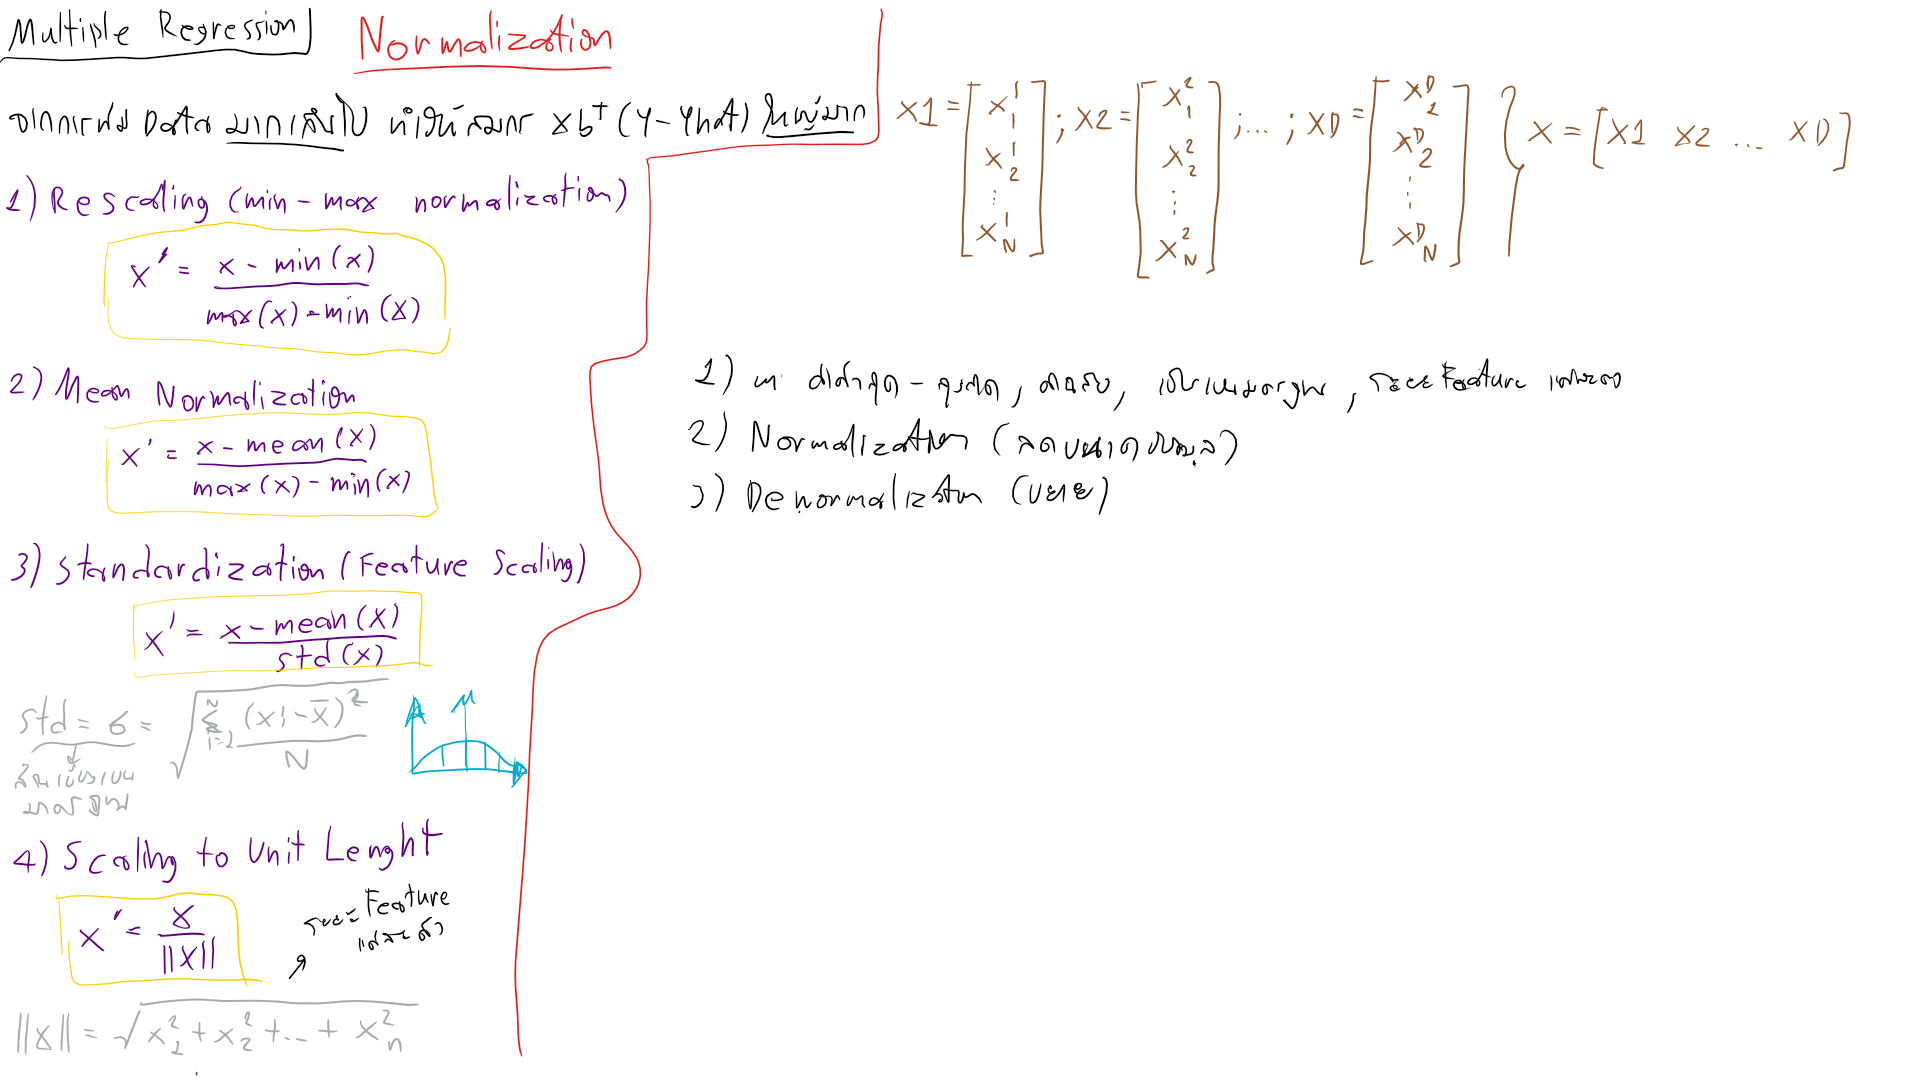 Multiple Regression
Normalization
จากการเพิ่ม Data มากเกินไป ทำให้สมการ Xb^T (Y-Yhat) ใหญ่มาก
1) Rescaling (min-max normalization)
x' = x - min(x) / max(x) - min(x)
2) Mean Normalization
x' = x - mean(x) / max(x) - min(x)
3) Standardization (Feature Scaling)
x' = x - mean(x) / std(x)
std = σ = √ Σ i=1 N (xi - x̄)² / N
ส่วนเบี่ยงเบน
มาตรฐาน
μ
4) Scaling to Unit Lenght
x' = x / ||x||
ระยะ Feature
แต่ละตัว
||x|| = √ x₁² + x₂² + ... + xₙ²
X1 = [x₁¹ x₂¹ ⋮ x_N¹] ; X2 = [x₁² x₂² ⋮ x_N²] ; ... ; XD = [x₁ᴰ x₂ᴰ ⋮ x_Nᴰ]
X = [X1 X2 ... XD]
1) หา ค่าต่ำสุด - สูงสุด, ค่าเฉลี่ย, เบี่ยงเบนมาตรฐาน, ระยะ Feature แต่ละตัว
2) Normalization (ลดขนาดข้อมูล)
3) Denormalization (ขยาย)